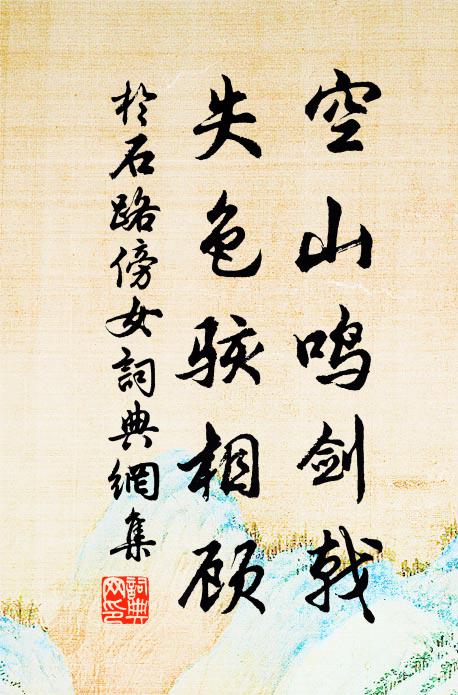 空山鸣剑戟
失色骇相顾
於石路傍女詞典網集
詞典